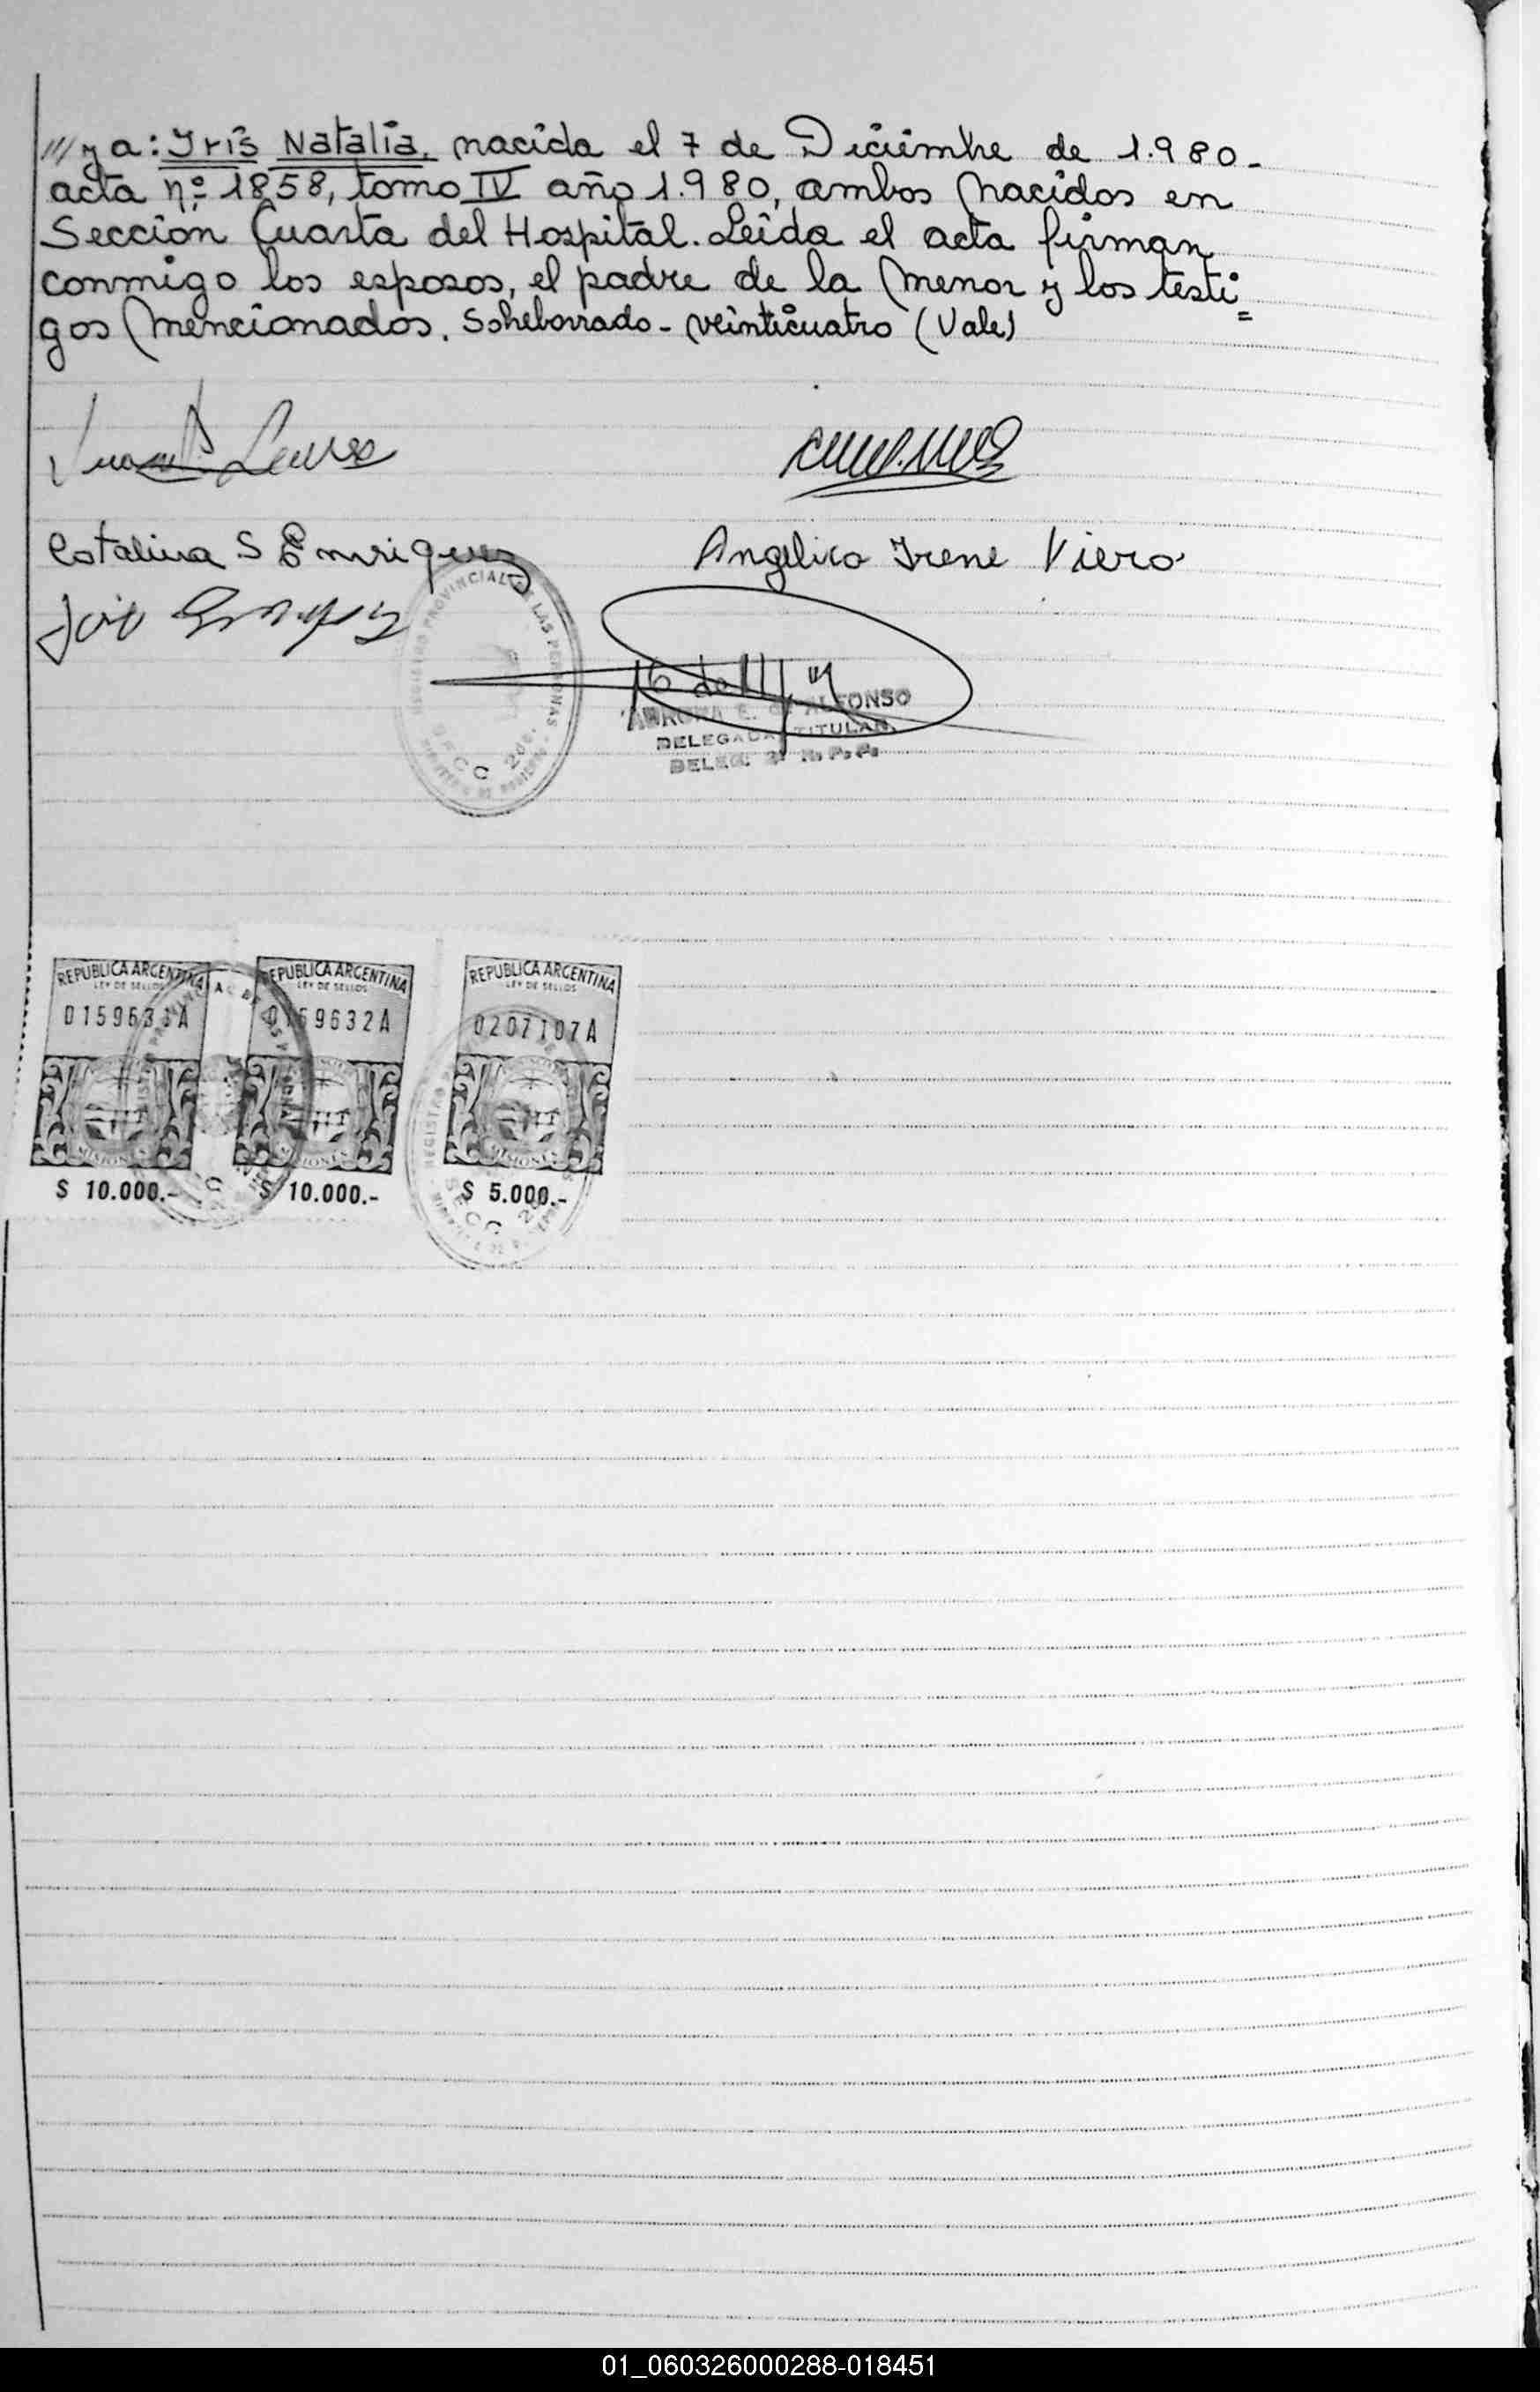 /// y a: Iris Natalia, nacida el 7 de Diciembre de 1.980-
acta nº 1858, tomo IV año 1.980, ambos nacidos en
Sección Cuarta del Hospital. Leída el acta firman
conmigo los esposos, el padre de la menor y los testi=
gos mencionados. Sobreborrado - veinticuatro (Vale)
Catalina S Enriquez
Angelica Irene Viero
REGISTRO PROVINCIAL DE LAS PERSONAS
SECC 2da.
E. de ALFONSO
DELEGADA TITULAR
DELEG. 2ª R. P. P.
REPUBLICA ARGENTINA REPUBLICA ARGENTINA REPUBLICA ARGENTINA
LEY DE SELLOS LEY DE SELLOS LEY DE SELLOS
0159632A 0207107A
MISIONES MISIONES MISIONES
$ 10.000.- $ 10.000.- $ 5.000.-
01_060326000288-018451